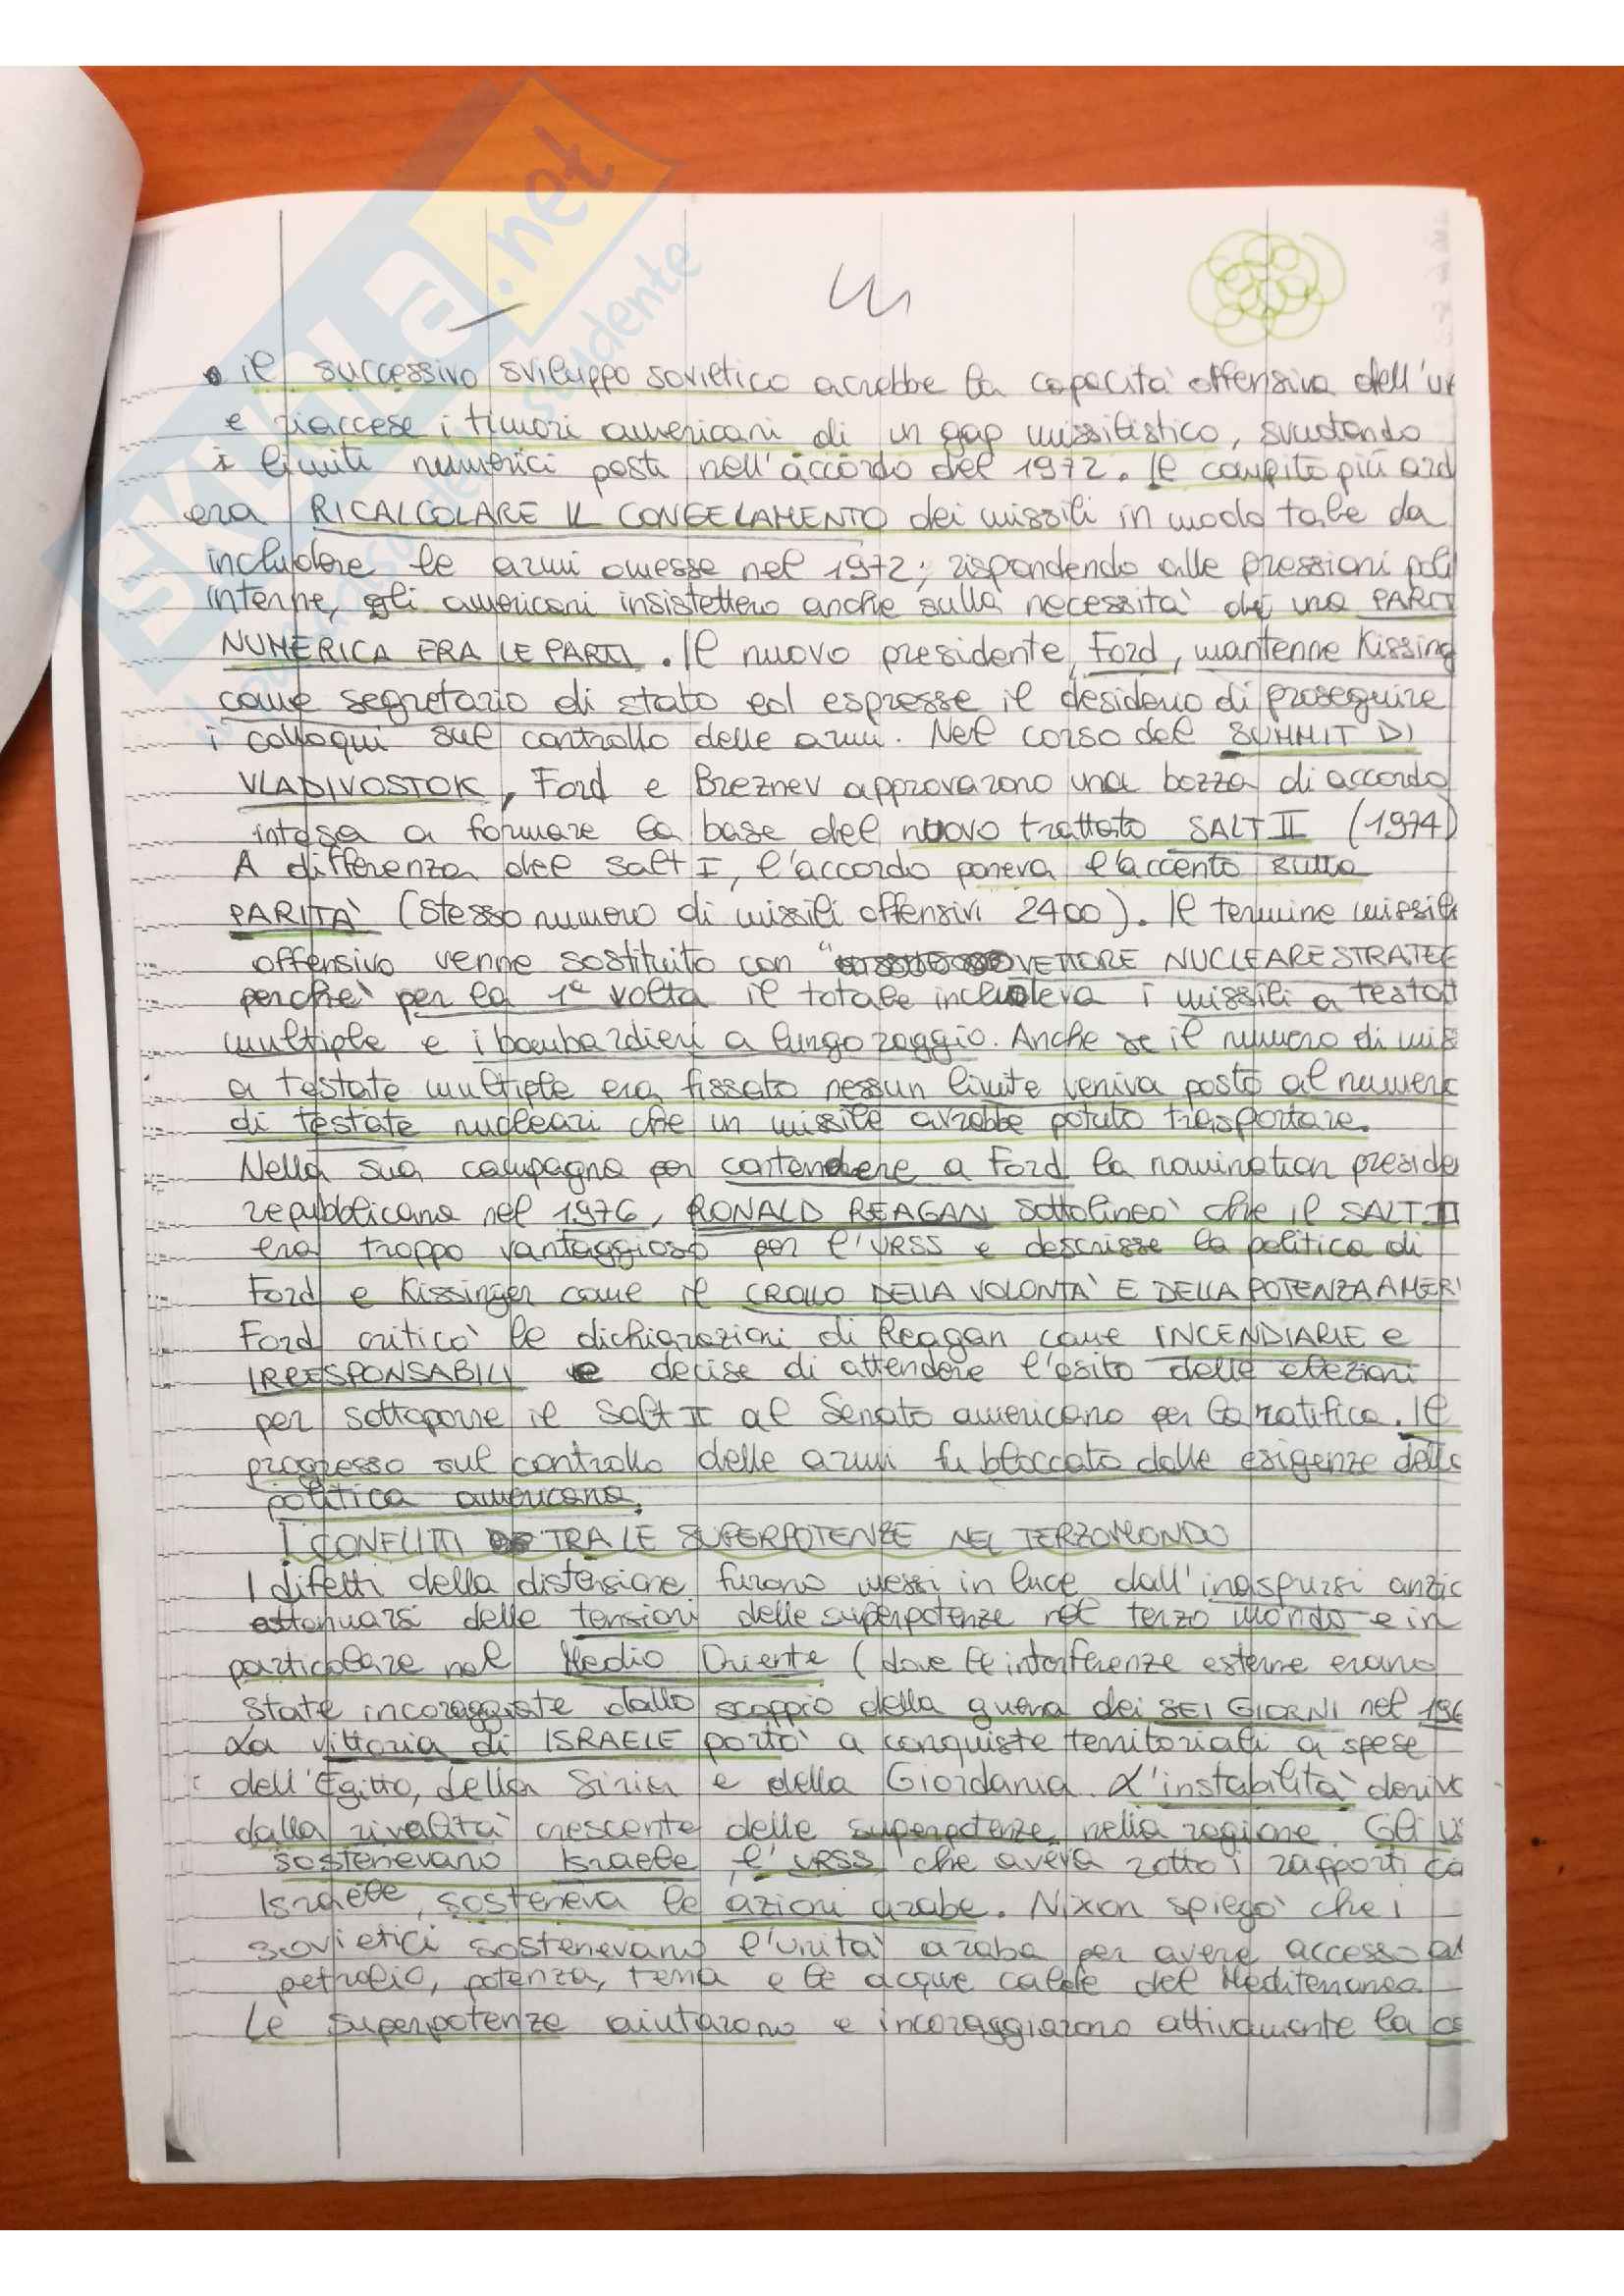 SKUOLA.net
il successivo sviluppo sovietico accrebbe la capacità offensiva dell'ur
e riaccese i timori americani di un gap missilistico, svuotando
i limiti numerici posti nell'accordo del 1972. Il compito più ard
era RICALCOLARE IL CONGELAMENTO dei missili in modo tale da
includere le armi omesse nel 1972; rispondendo alle pressioni poli
interne, gli americani insistettero anche sulla necessità di una PARIT
NUMERICA FRA LE PARTI. Il nuovo presidente, Ford, mantenne Kissing
come segretario di stato ed espresse il desiderio di proseguire
i colloqui sul controllo delle armi. Nel corso del SUMMIT DI
VLADIVOSTOK, Ford e Breznev approvarono una bozza di accordo
intesa a formare la base del nuovo trattato SALT II (1974)
A differenza del Salt I, l'accordo poneva l'accento sulla
PARITÀ (stesso numero di missili offensivi 2400). Il termine missile
offensivo venne sostituito con "VETTORE NUCLEARE STRATEG
perchè per la 1ª volta il totale includeva i missili a testat
multiple e i bombardieri a lungo raggio. Anche se il numero di mis
a testate multiple era fissato nessun limite veniva posto al numero
di testate nucleari che un missile avrebbe potuto trasportare.
Nella sua campagna per contendere a Ford la nomination preside
repubblicana nel 1976, RONALD REAGAN sottolineò che il SALT II
era troppo vantaggioso per l'URSS e descrisse la politica di
Ford e Kissinger come il CROLLO DELLA VOLONTÀ E DELLA POTENZA AMERI
Ford criticò le dichiarazioni di Reagan come INCENDIARIE e
IRRESPONSABILI e decise di attendere l'esito delle elezioni
per sottoporre il Salt II al Senato americano per la ratifica. Il
progresso sul controllo delle armi fu bloccato dalle esigenze della
politica americana.
I CONFLITTI TRA LE SUPERPOTENZE NEL TERZO MONDO
I difetti della distensione furono messi in luce dall'inasprirsi anzic
attenuarsi delle tensioni delle superpotenze nel terzo mondo e in
particolare nel Medio Oriente (dove le interferenze esterne erano
state incoraggiate dallo scoppio della guerra dei SEI GIORNI nel 196
La vittoria di ISRAELE portò a conquiste territoriali a spese
dell'Egitto, della Siria e della Giordania. L'instabilità deriva
dalla rivalità crescente delle superpotenze nella regione. Gli US
sostenevano Israele, l'URSS che aveva rotto i rapporti co
Israele, sosteneva le azioni arabe. Nixon spiegò che i
sovietici sostenevano l'unità araba per avere accesso al
petrolio, potenza, terra e le acque calde del Mediterraneo.
Le superpotenze aiutarono e incoraggiarono attivamente la